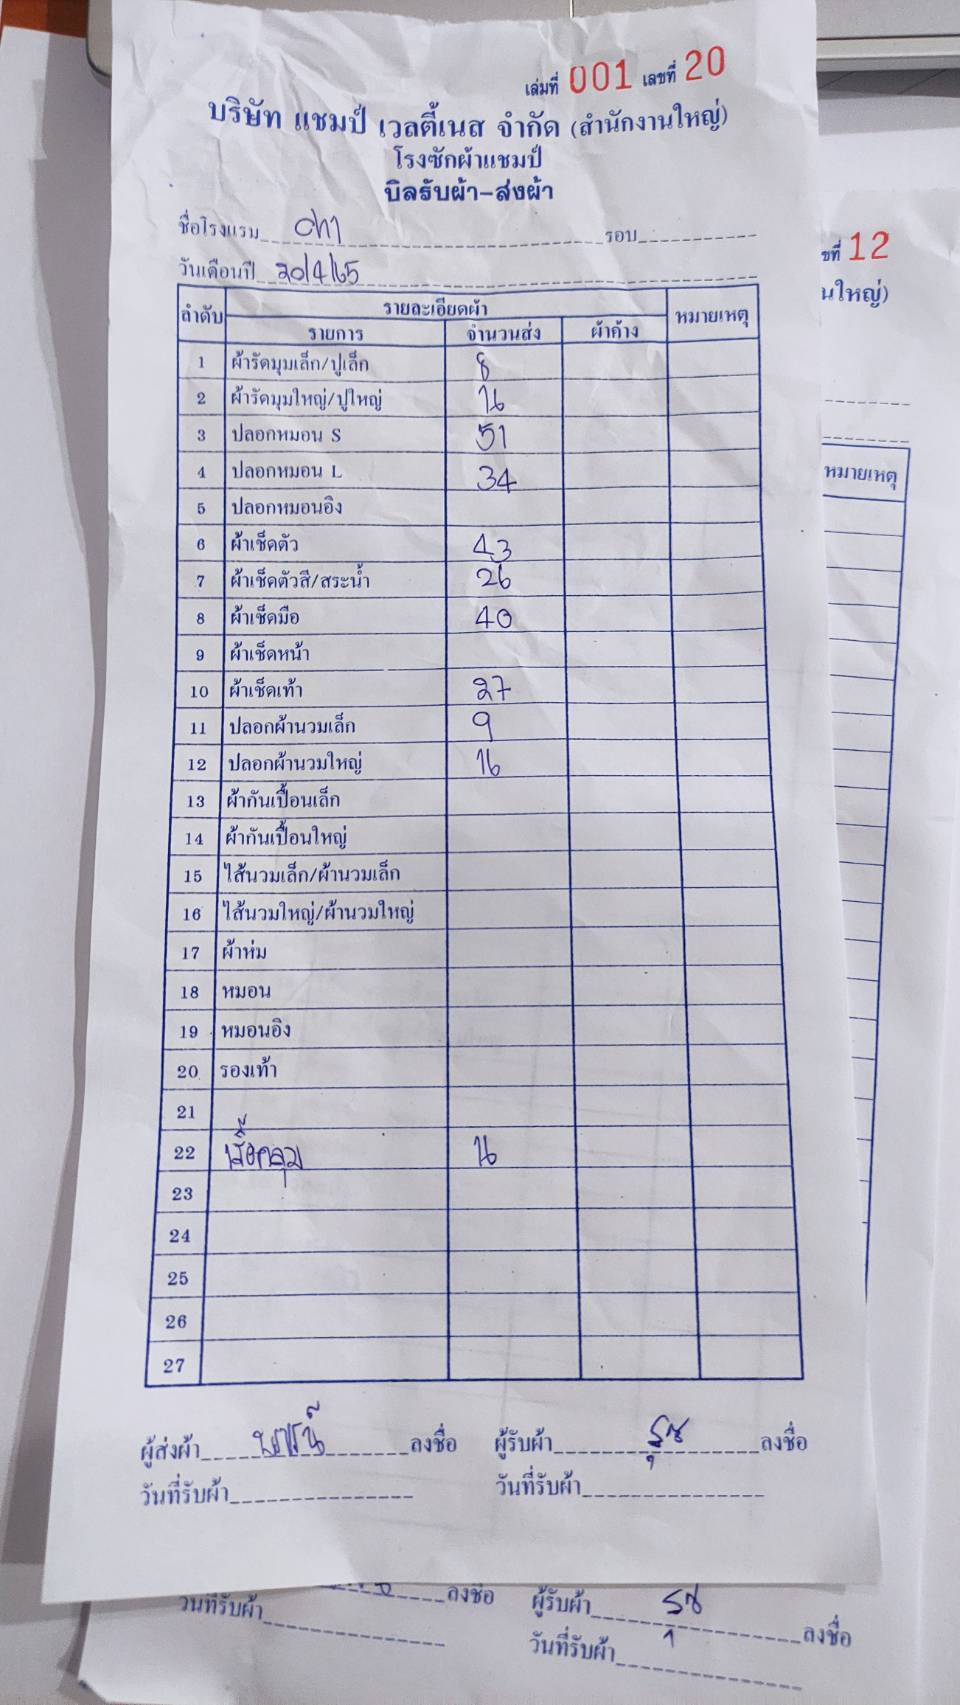 เล่มที่ 001 เลขที่ 20
บริษัท แชมป์ เวลตี้เนส จำกัด (สำนักงานใหญ่)
โรงซักผ้าแชมป์
บิลรับผ้า-ส่งผ้า
ชื่อโรงแรม รอบ
วันเดือนปี 20/4/65
ลำดับ รายละเอียดผ้า หมายเหตุ
รายการ จำนวนส่ง ผ้าค้าง
1 ผ้ารัดมุมเล็ก/ปูเล็ก 8
2 ผ้ารัดมุมใหญ่/ปูใหญ่ 16
3 ปลอกหมอน S 51
4 ปลอกหมอน L 34
5 ปลอกหมอนอิง
6 ผ้าเช็ดตัว 43
7 ผ้าเช็ดตัวสี/สระน้ำ 26
8 ผ้าเช็ดมือ 40
9 ผ้าเช็ดหน้า
10 ผ้าเช็ดเท้า 27
11 ปลอกผ้านวมเล็ก 9
12 ปลอกผ้านวมใหญ่ 16
13 ผ้ากันเปื้อนเล็ก
14 ผ้ากันเปื้อนใหญ่
15 ไส้นวมเล็ก/ผ้านวมเล็ก
16 ไส้นวมใหญ่/ผ้านวมใหญ่
17 ผ้าห่ม
18 หมอน
19 หมอนอิง
20 รองเท้า
21
22 เสื้อคลุม 16
23
24
25
26
27
ผู้ส่งผ้า ลงชื่อ ผู้รับผ้า ลงชื่อ
วันที่รับผ้า วันที่รับผ้า
ขที่ 12
นใหญ่)
หมายเหตุ
ลงชื่อ ผู้รับผ้า ลงชื่อ
วันที่รับผ้า วันที่รับผ้า